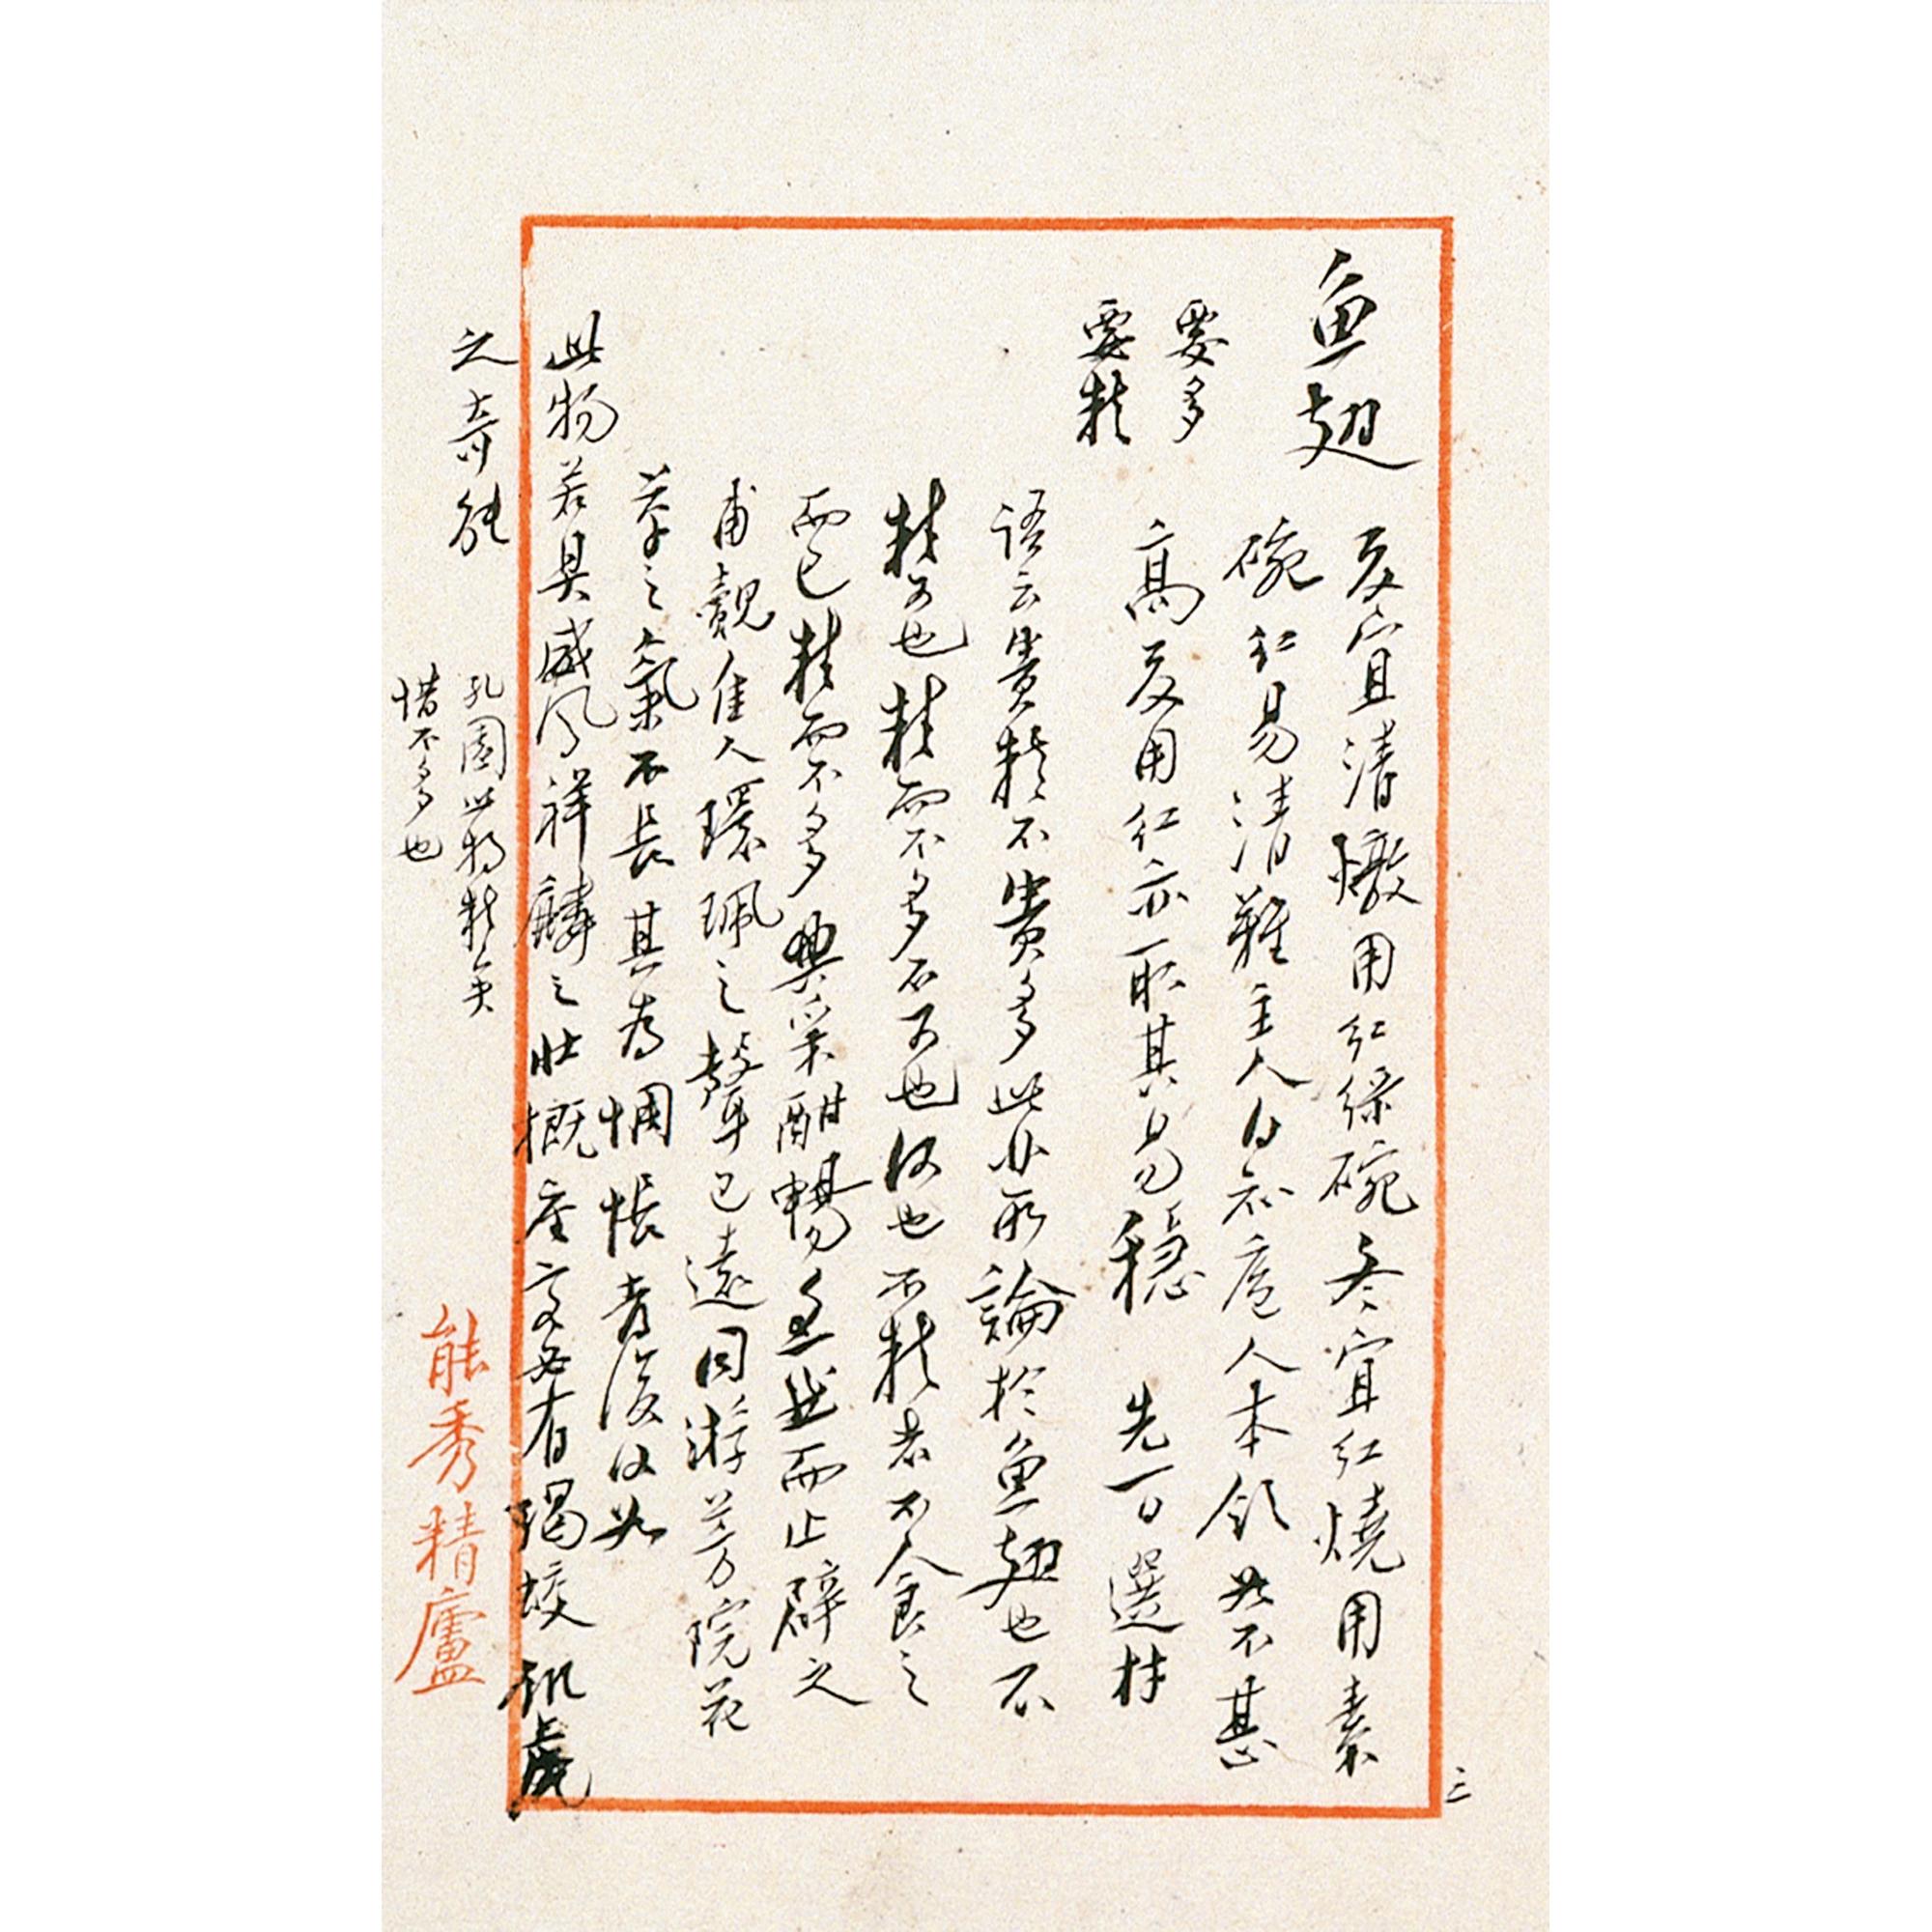 魚翅
夏宜清燉用紅綵碗冬宜紅燒用素
碗紅易清難主人自知庖人本領如不甚
高夏用紅亦取其易穩 先一日選材
要多
要精
語云貴精不貴多此非所論於魚翅也不
精可也精而不多不可也何也不精者不食之
而已精而不多興采酣暢至此而止辟之
甫觀佳人環珮之聲已遠同游芳院花
草之氣不長其為惆悵者復何如
此物若具威風祥麟之壯概座客必有搏蛟執虎
之奇能
孔園此物精矣
惜不多也
能秀精廬
三